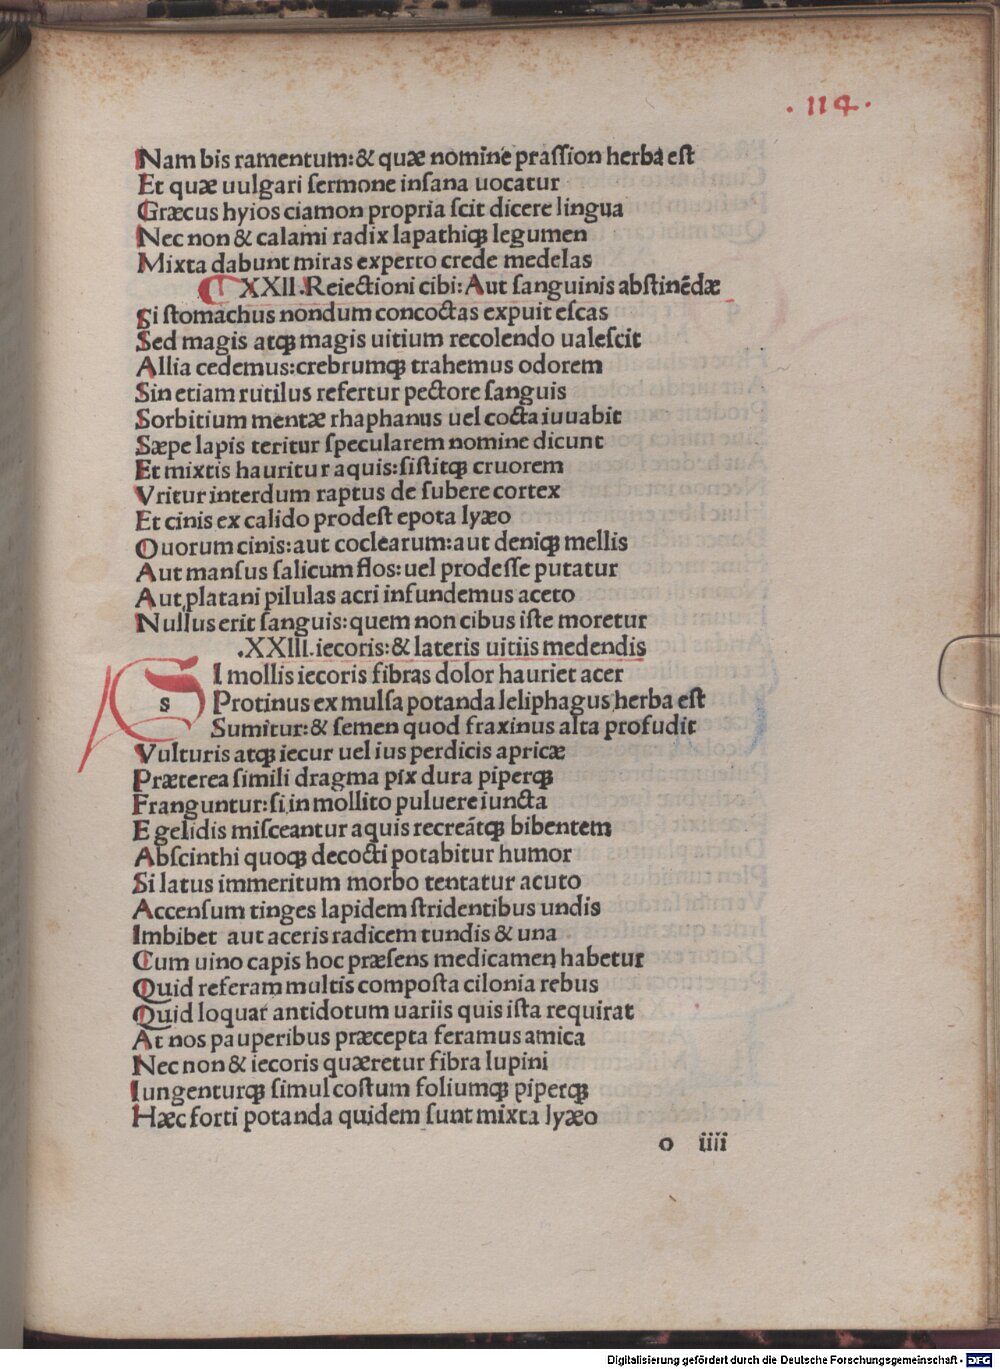 .114.
Nam bis ramentum:& quæ nomine prassion herba est
Et quæ uulgari sermone insana uocatur
Græcus hyios ciamon propria scit dicere lingua
Nec non & calami radix lapathiqꝫ legumen
Mixta dabunt miras experto crede medelas
XXII.Reiectioni cibi: Aut sanguinis abstinẽdæ
Si stomachus nondum concoctas expuit escas
Sed magis atqꝫ magis uitium recolendo ualescit
Allia cedemus:crebrumqꝫ trahemus odorem
Sin etiam rutilus refertur pectore sanguis
Sorbitium mentæ rhaphanus uel cocta iuuabit
Sæpe lapis teritur specularem nomine dicunt
Et mixtis hauritur aquis:sistitqꝫ cruorem
Vritur interdum raptus de subere cortex
Et cinis ex calido prodest epota lyæo
Quorum cinis:aut coclearum:aut deniqꝫ mellis
Aut mansus salicum flos:uel prodesse putatur
Aut platani pilulas acri infundemus aceto
Nullus erit sanguis:quem non cibus iste moretur
.XXIII.iecoris:& lateris uitiis medendis
SI mollis iecoris fibras dolor hauriet acer
s Protinus ex mulsa potanda leliphagus herba est
Sumitur:& semen quod fraxinus alta profudit
Vulturis atqꝫ iecur uel ius perdicis apricæ
Præterea simili dragma pix dura piperqꝫ
Franguntur:si in mollito puluere iuncta
Egelidis misceantur aquis recreãtqꝫ bibentem
Abscinthi quoqꝫ decocti potabitur humor
Si latus immeritum morbo tentatur acuto
Accensum tinges lapidem stridentibus undis
Imbibet aut aceris radicem tundis & una
Cum uino capis hoc præsens medicamen habetur
Quid referam multis composta cilonia rebus
Quid loquar antidotum uariis quis ista requirat
At nos pauperibus præcepta feramus amica
Nec non & iecoris quæretur fibra lupini
Iungenturqꝫ simul costum foliumqꝫ piperqꝫ
Hæc forti potanda quidem sunt mixta lyæo
o iiii
Digitalisierung gefördert durch die Deutsche Forschungsgemeinschaft - DFG